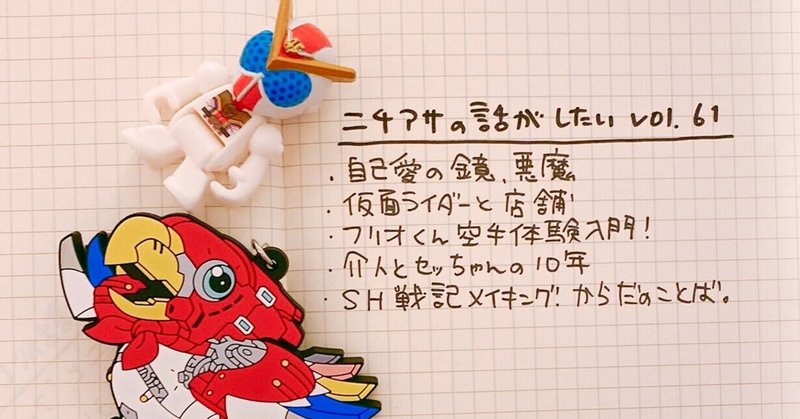 ニチアサの話がしたい vol.61
・自己愛の鏡、悪魔
・仮面ライダーと店舗
・フリオくん空手体験入門!
・介人とセッちゃんの10年
・SH戦記メイキング!からだのことば。